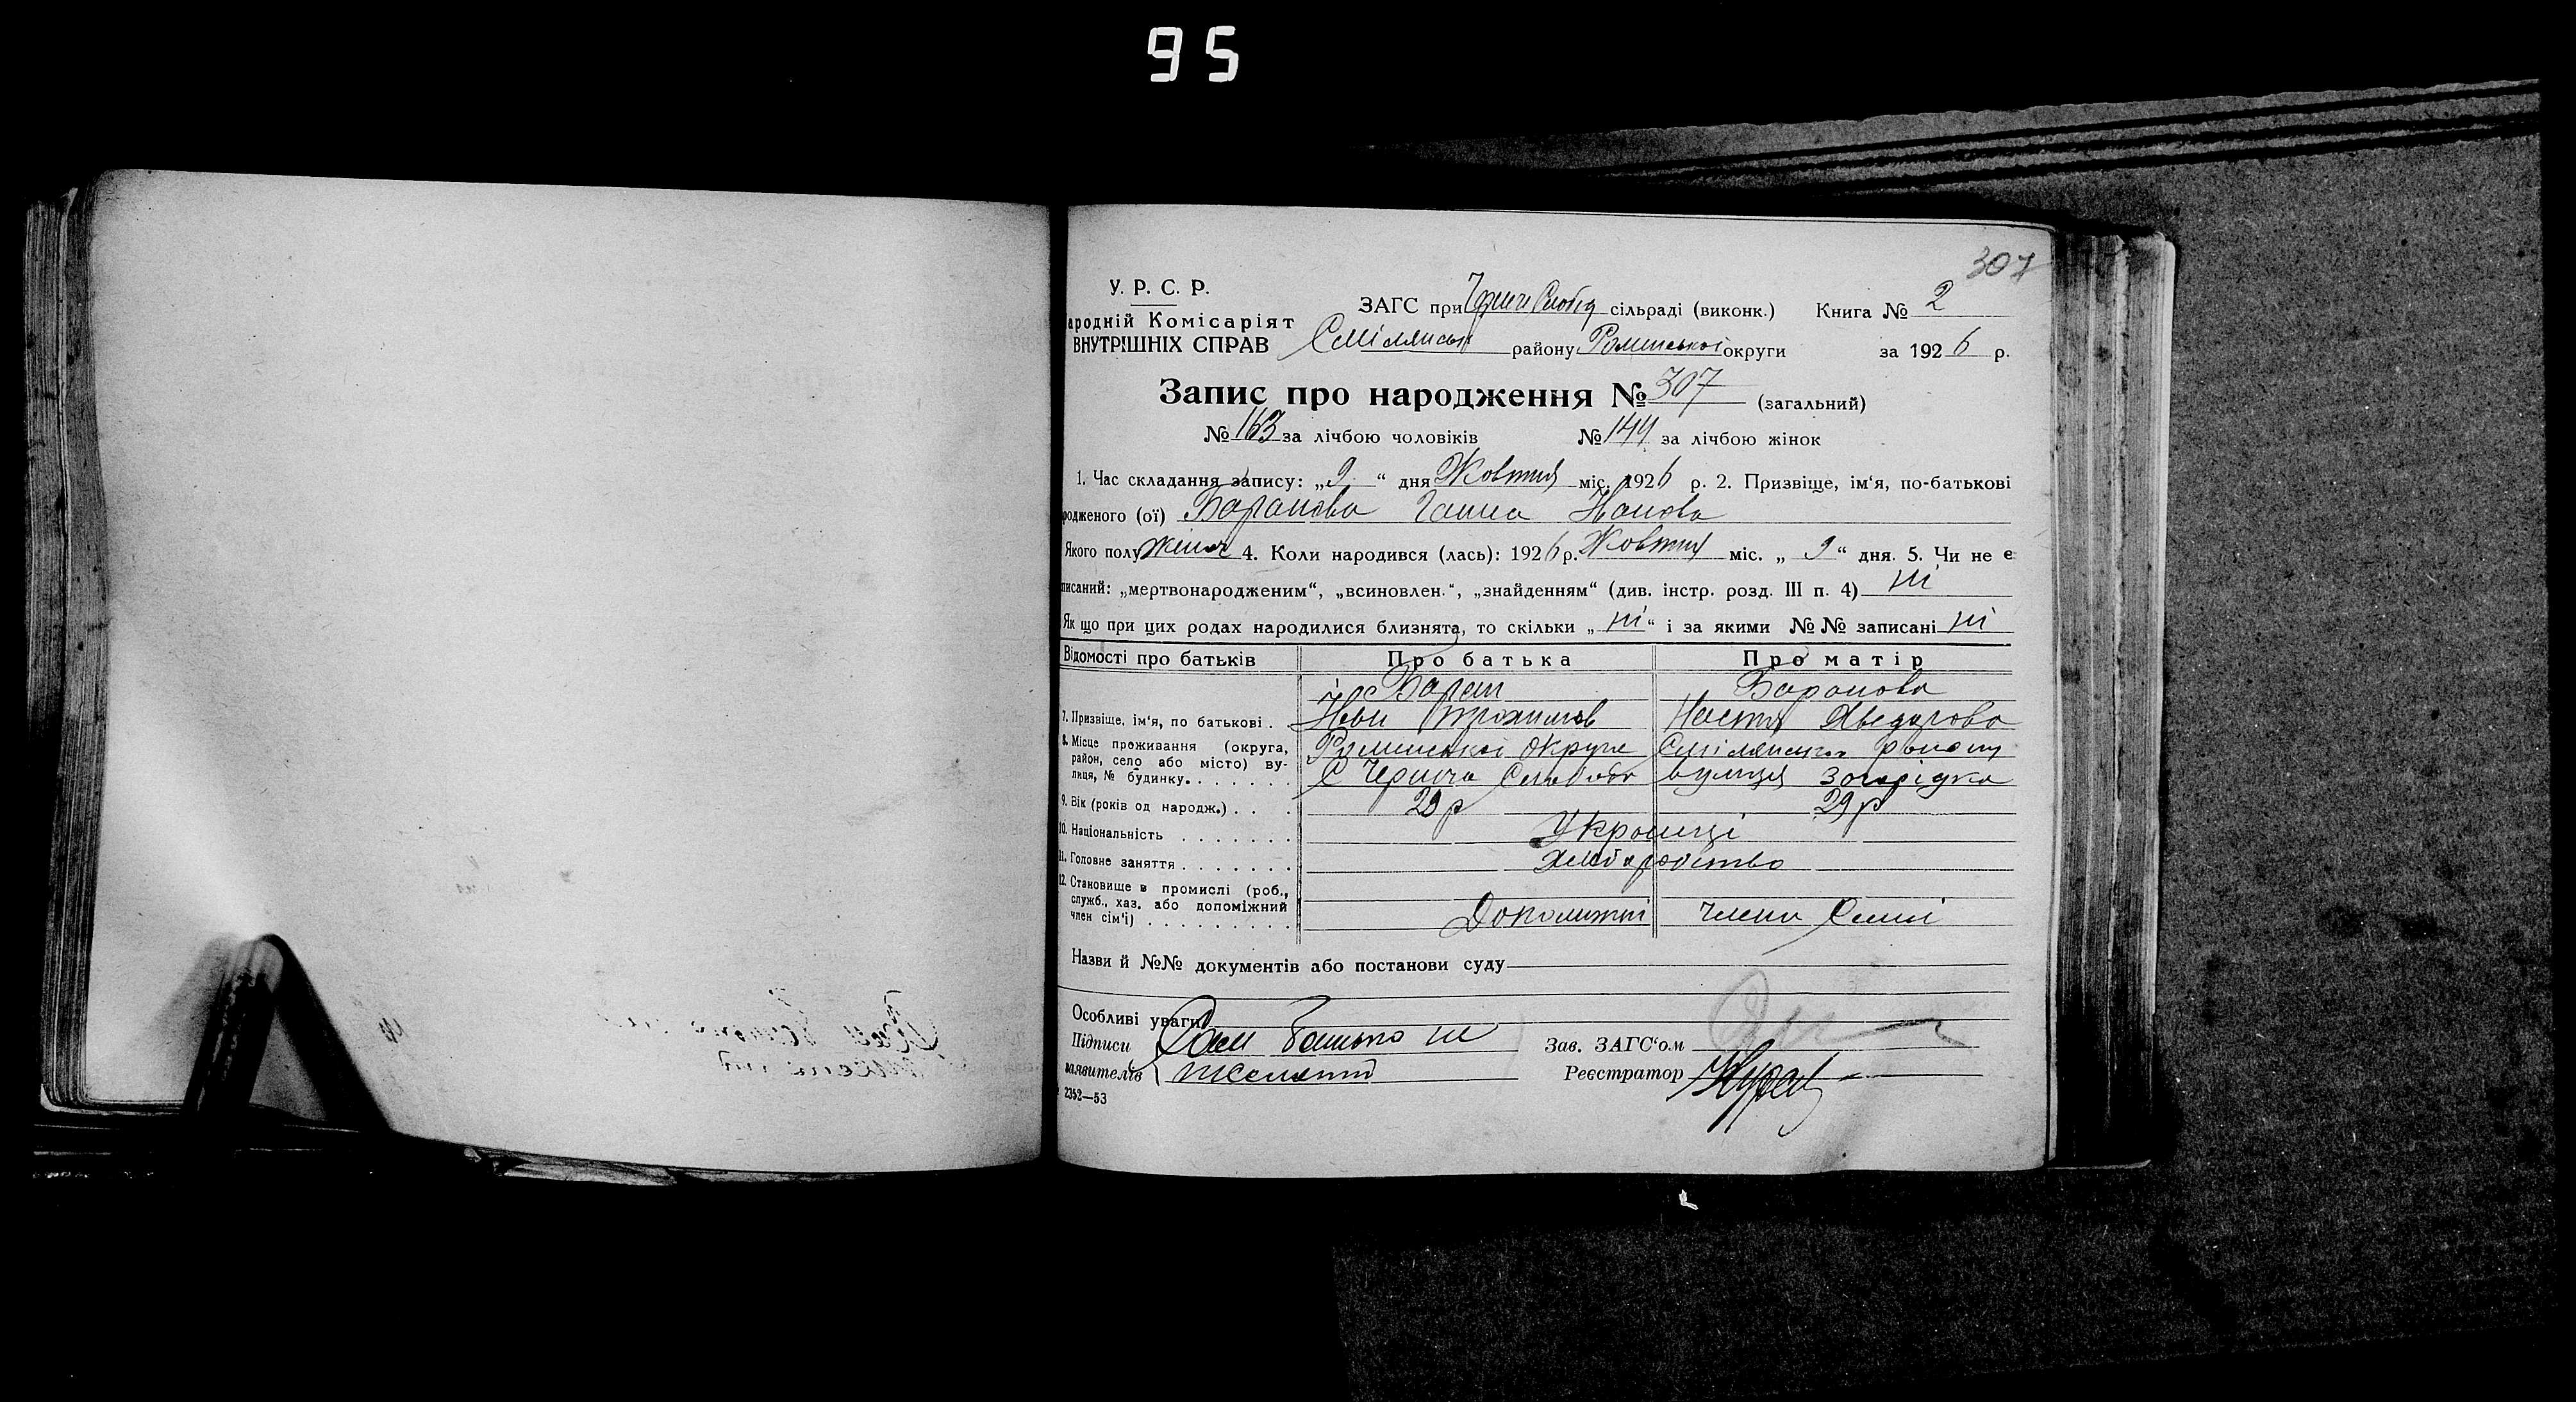 95
307
У. Р. С. Р.
ародній Комісаріят
ВНУТРІШНІХ СПРАВ
ЗАГС при сільраді (виконк.) Книга № 2
району Роменської округи за 1926 р.
Запис про народження № 307 (загальний)
№ 163 за лічбою чоловіків № 144 за лічбою жінок
1. Час складання запису: „9“ дня Жовтня міс. 1926 р. 2. Призвіще, ім‘я, по-батькові
родженого (ої) Баранова Ганна
Якого полу жіноч 4. Коли народився (лась): 1926 р. Жовтня міс. „9“ дня. 5. Чи не є
писаний: „мертвонародженим“, „всиновлен.“, „знайденням“ (див. інстр. розд. III п. 4) ні
Як що при цих родах народилися близнята, то скільки „ні“ і за якими №№ записані ні
Відомості про батьків Про батька Про матір
Баран Баранова
7. Призвіще, ім‘я, по батькові . Іван Трохимов Настя Хведорова
8. Місце проживання (округа, район, село або місто) вулиця, № будинку. Роменської округи Смілянського району
С Чернеча Слобода вулиця Загорідка
9. Вік (років од народж.) . . . 29 р 29 р
10. Національність . . . . . . . Українці
11. Головне заняття . . . . . . . хліборобство
12. Становище в промислі (роб., служб., хаз. або допоміжний член сім‘ї) . . . . . . . . . Допоміжні члени Семї
Назви й №№ документів або постанови суду
Особливі уваги
Підписи Сам батько не
заявителів Зав. ЗАГС‘ом
Реєстратор
2352—53